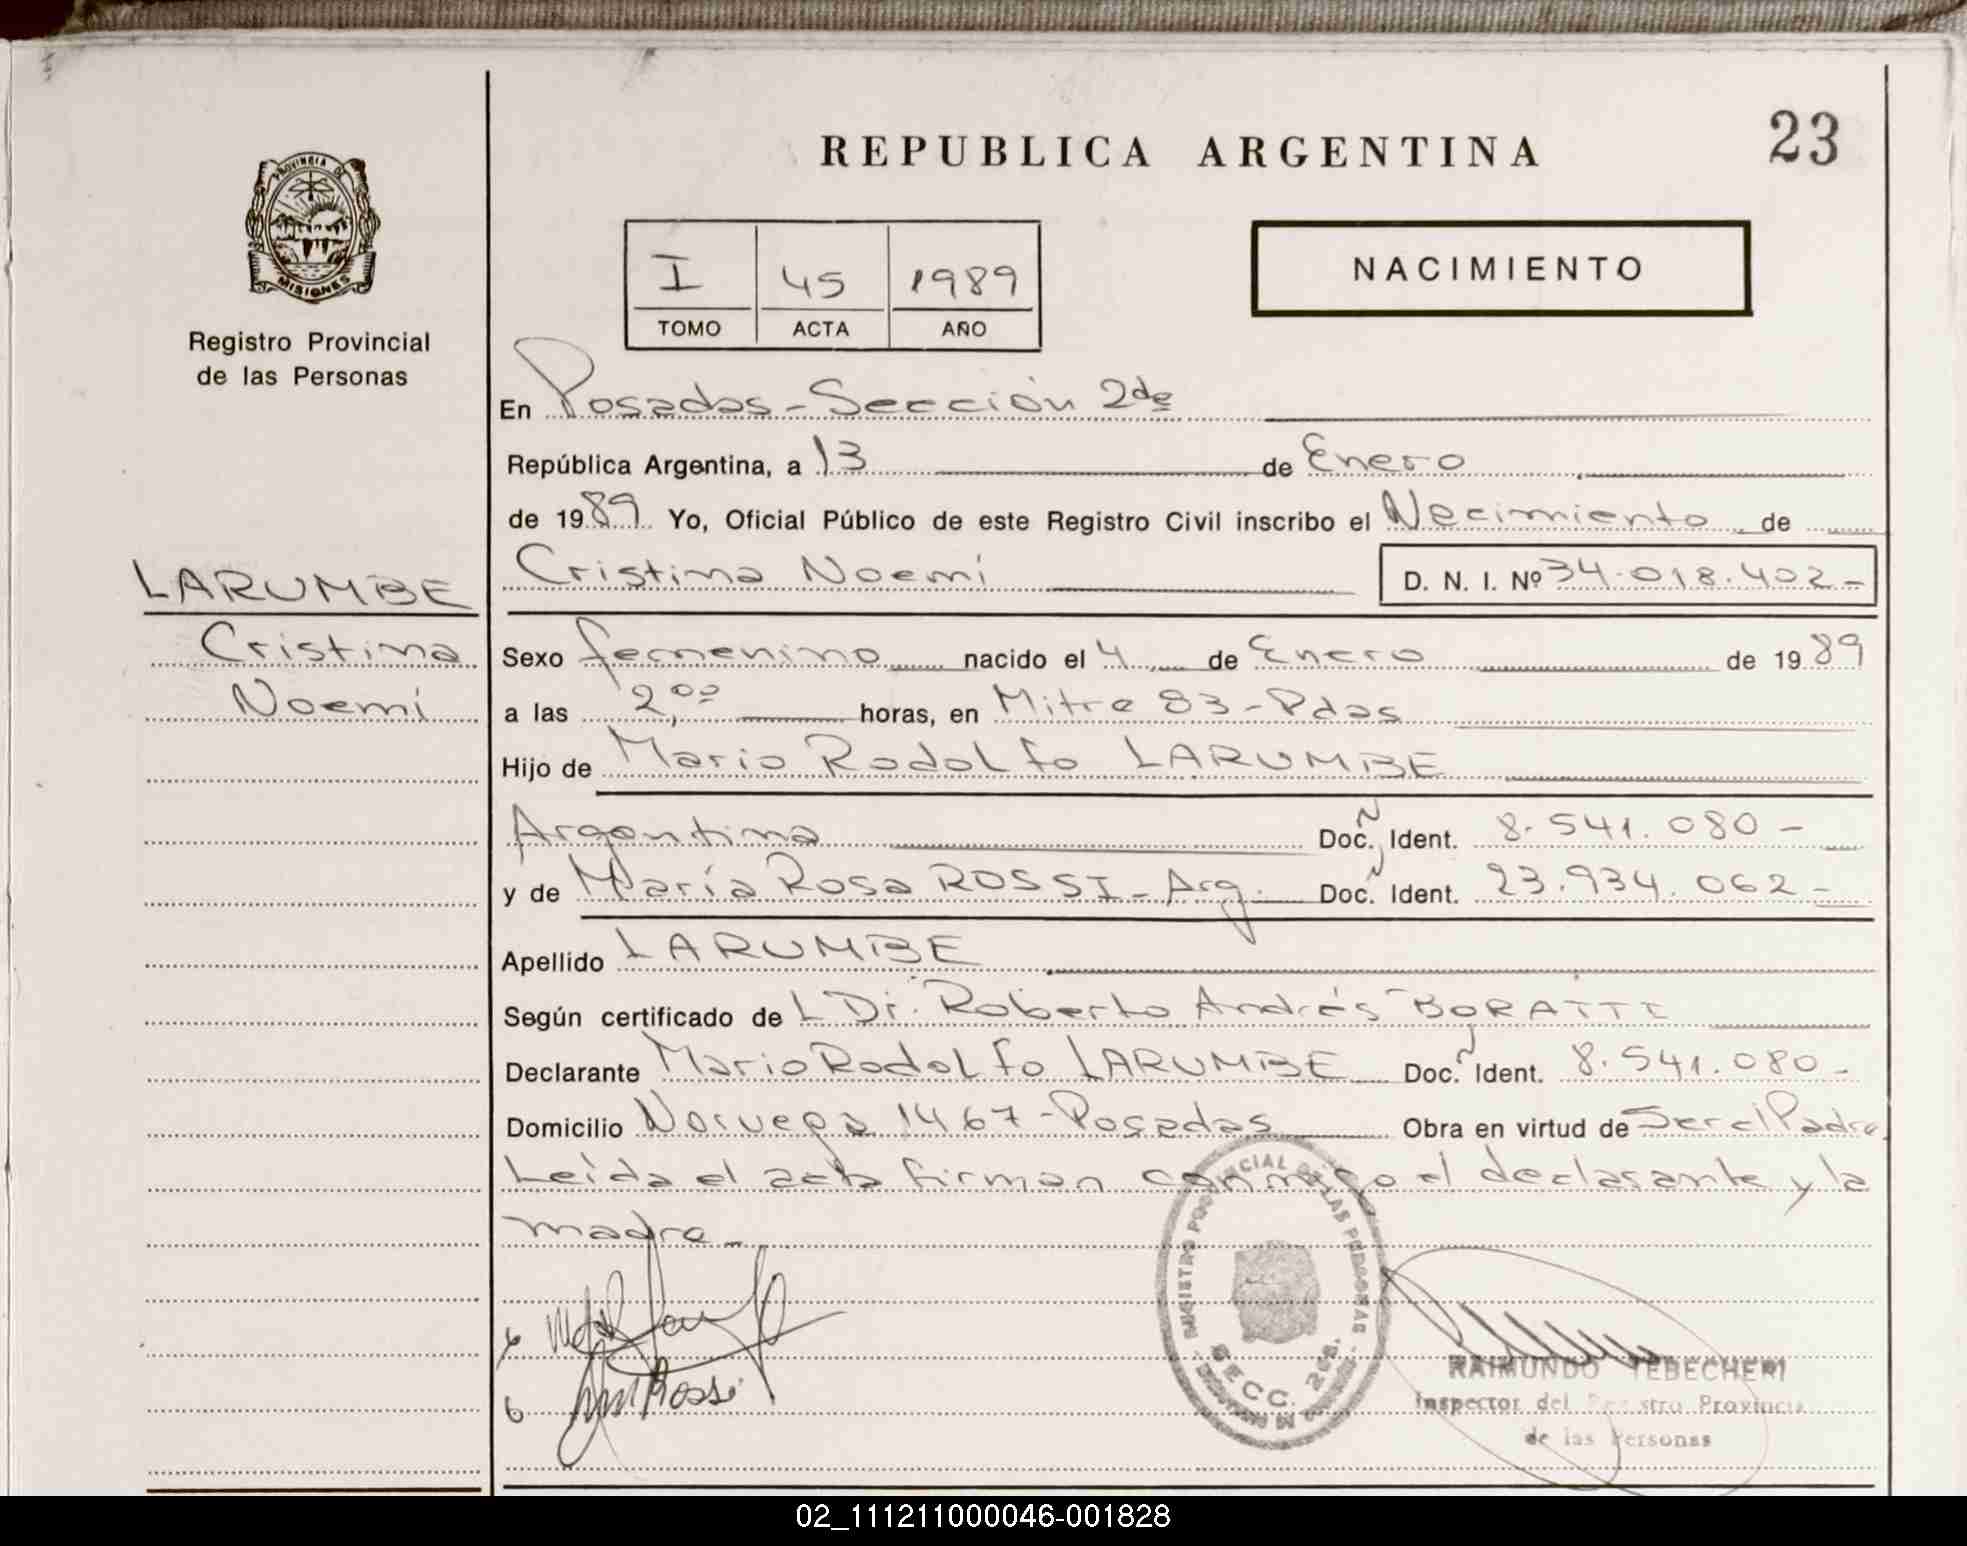 PROVINCIA DE
MISIONES
Registro Provincial
de las Personas
LARUMBE
Cristina
Noemí
REPUBLICA ARGENTINA
23
I 45 1989
TOMO ACTA AÑO
NACIMIENTO
En Posadas - Sección 2da
República Argentina, a 13 de Enero
de 1989 Yo, Oficial Público de este Registro Civil inscribo el Nacimiento de
Cristina Noemí D. N. I. Nº 34.018.402-
Sexo femenino nacido el 4 de Enero de 1989
a las 2,00 horas, en Mitre 83 - Pdas
Hijo de Mario Rodolfo LARUMBE
Argentina Doc. Ident. 8.541.080-
y de María Rosa ROSSI - Arg. Doc. Ident. 23.934.062-
Apellido LARUMBE
Según certificado de L Dr. Roberto Andrés BORATTI
Declarante Mario Rodolfo LARUMBE Doc. Ident. 8.541.080-
Domicilio Noruega 1467 - Posadas Obra en virtud de Ser el Padre
Leída el acta firman conmigo el declarante y la
madre -
REGISTRO PROVINCIAL DE LAS PERSONAS
SECC. 2da.
Rossi
RAIMUNDO TEBECHERI
Inspector del Registro Provincial
de las Personas
02_111211000046-001828